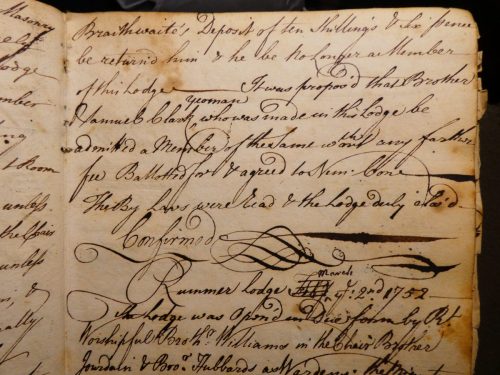 Masonry
Lodge
Room
unless
the Chair
unless
Braithwaite's Deposit of ten Shillings & Six pence
be return'd him & he be no longer a Member
of this Lodge — It was propos'd that Brother
Samuel Clark yeoman, who was made in this Lodge be
admitted a Member of the same wth.out any farther
fee Ballotted for & agreed to Nem: Con
The By Laws were read & the Lodge duly clos'd
Confirmed
Rummer Lodge March ye: 2nd 1752
The Lodge was open'd in Due form by Rt
Worshipfull Bror. Williams in the Chair Brother
Jourdain & Bror. Hubbards as Wardens: the